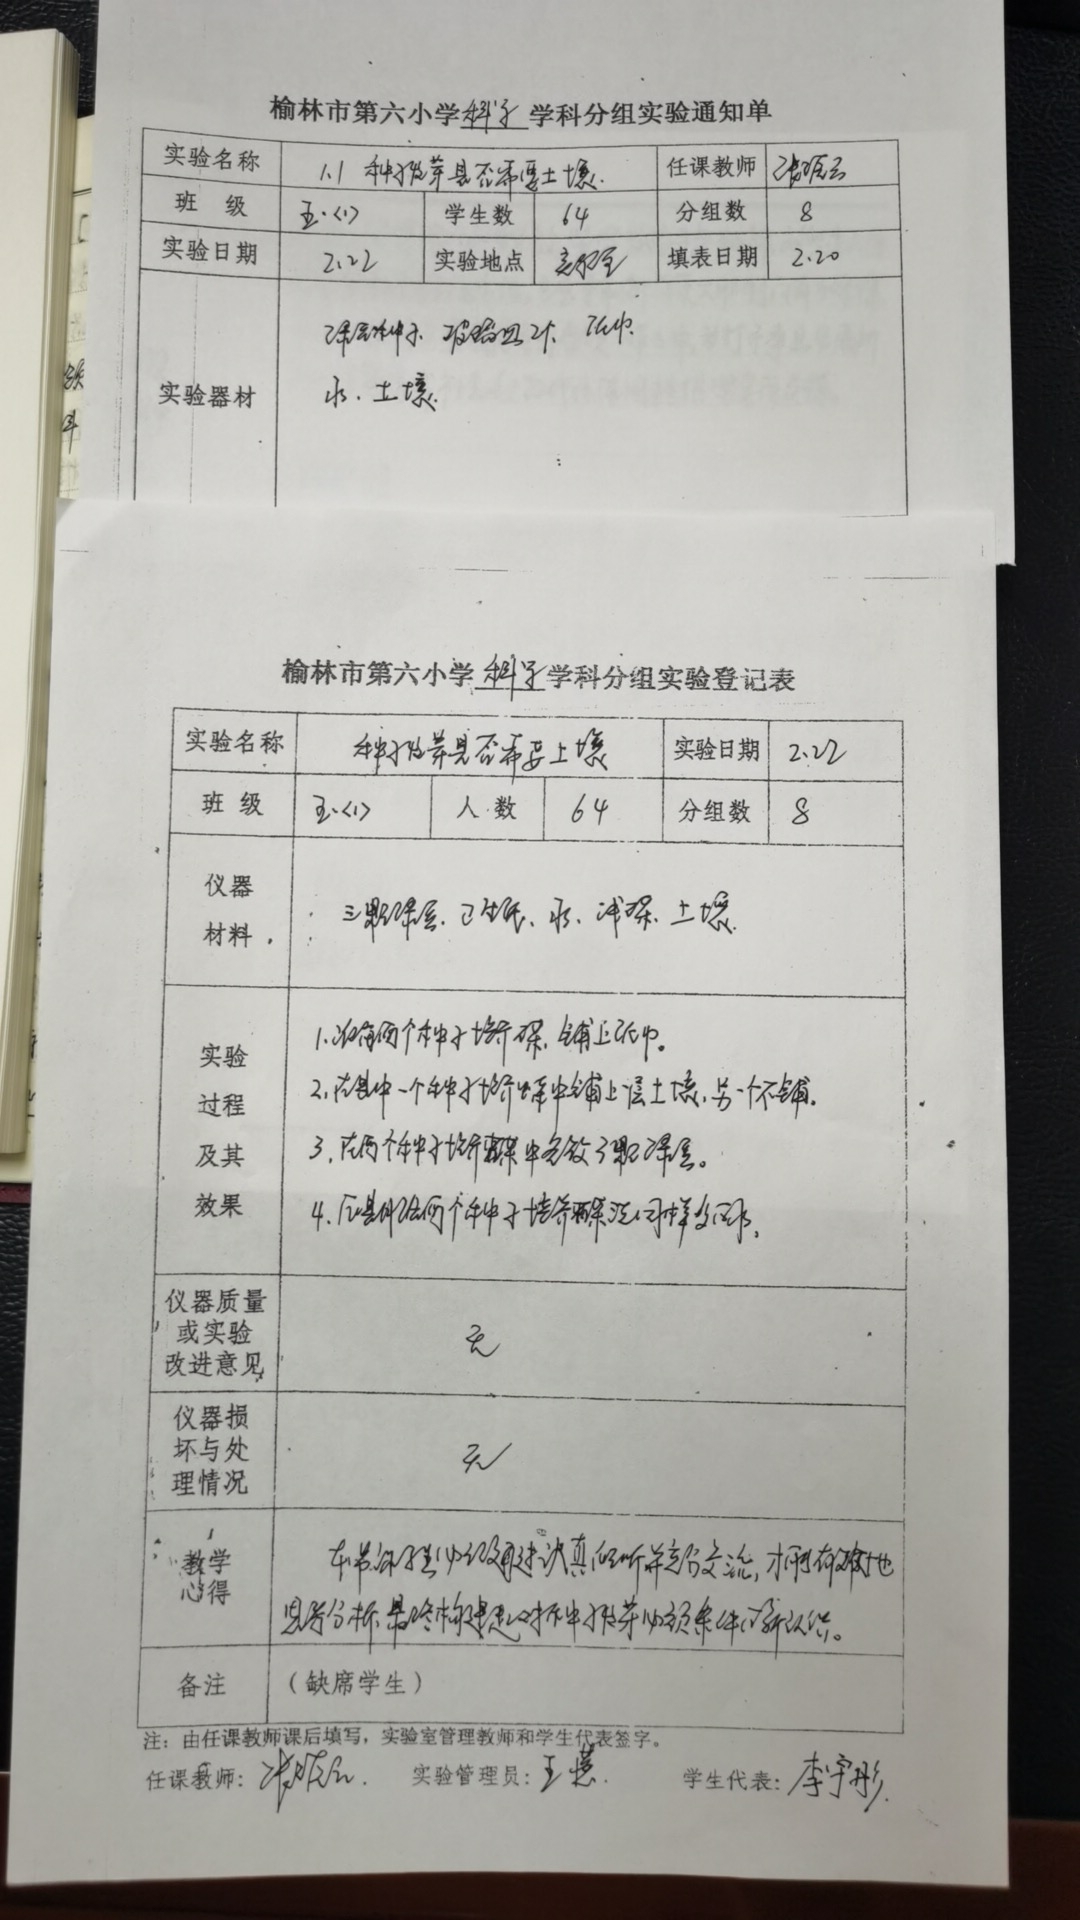 榆林市第六小学科学学科分组实验通知单
实验名称 1.1 种子发芽是否需要土壤. 任课教师
班 级 五.<1> 学生数 64 分组数 8
实验日期 2.22 实验地点 实验室 填表日期 2.20
绿豆种子、玻璃皿 纸巾
实验器材 水、土壤
榆林市第六小学科学学科分组实验登记表
实验名称 种子发芽是否需要土壤 实验日期 2.22
班 级 五.<1> 人 数 64 分组数 8
仪器
材料 绿豆、卫生纸、水、土壤
实验
过程
及其
效果
1. 两个种子培养 铺上纸巾。
2. 在其中一个种子培养 中铺上层土壤,另一个不铺。
3. 在两个种子培养 中各放3颗绿豆。
4. 两个种子培养 同样多的水。
仪器质量
或实验
改进意见 无
仪器损
坏与处
理情况 无
教学
心得
本节课学生必须通过认真倾听并充分交流,才能有效地
思考分析 种子发芽必须条件的新认识。
备注 (缺席学生)
注:由任课教师课后填写,实验室管理教师和学生代表签字。
任课教师: 实验管理员:王慧. 学生代表:李宇彤